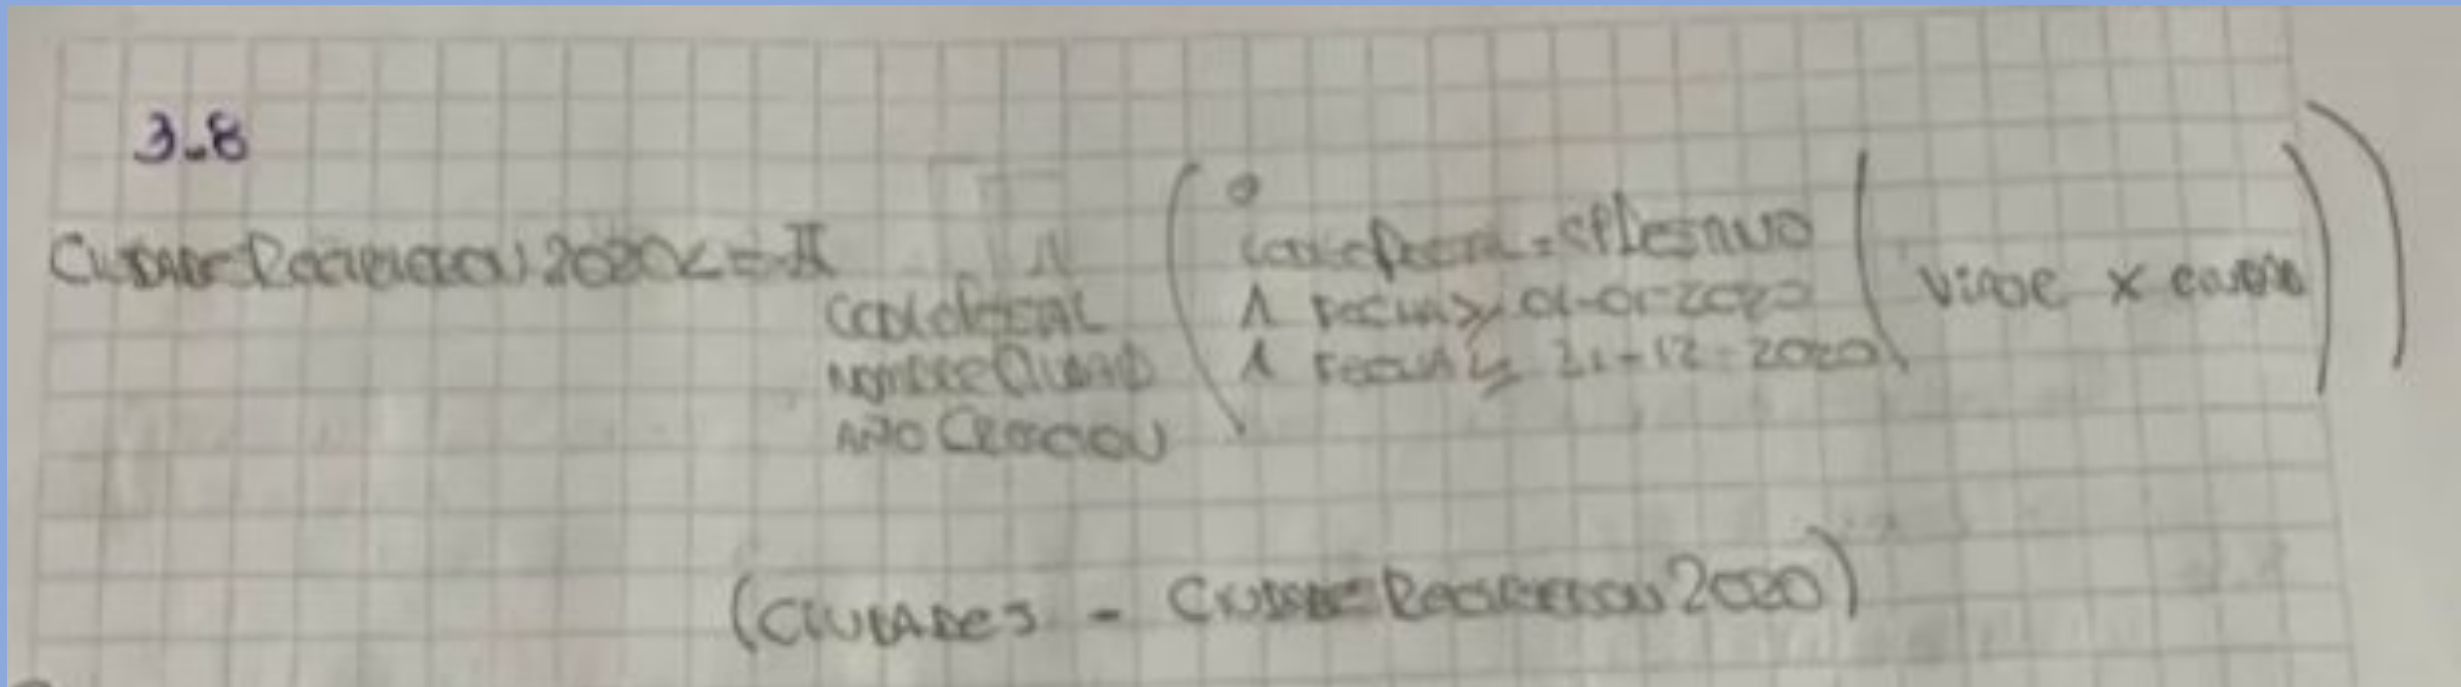 3-8
CIUDADESRECIBIERON2020 <= π
CODIGOPOSTAL
NOMBRECIUDAD
AÑOCREACION
( σ
CODIGOPOSTAL = CPDESTINO
∧ FECHA >= 01-01-2020
∧ FECHA <= 31-12-2020
( VIAJE X CIUDAD ) )
(CIUDADES - CIUDADESRECIBIERON2020)